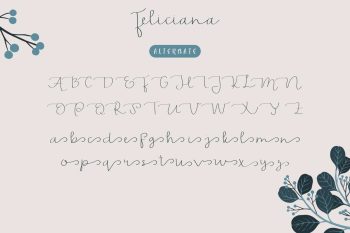 Feliciana
ALTERNATE
A B C D E F G H I J K L M N
O P Q R S T U V W X Y Z
a b c d e f g h i j k l m n
o p q r s t u v w x y z